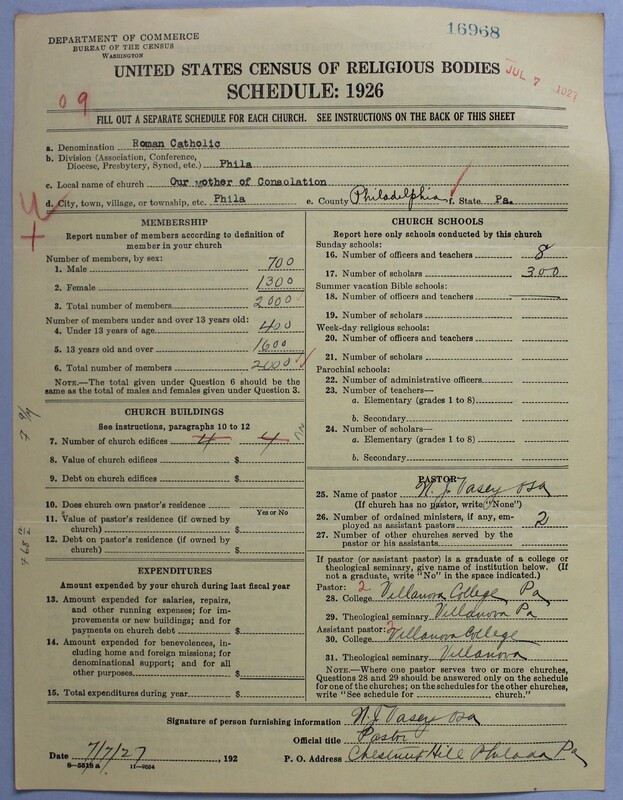 16968
DEPARTMENT OF COMMERCE
BUREAU OF THE CENSUS
WASHINGTON
UNITED STATES CENSUS OF RELIGIOUS BODIES
JUL 7 1927
SCHEDULE: 1926
09
FILL OUT A SEPARATE SCHEDULE FOR EACH CHURCH. SEE INSTRUCTIONS ON THE BACK OF THIS SHEET
a. Denomination Roman Catholic
b. Division (Association, Conference,
Diocese, Presbytery, Synod, etc.) Phila
c. Local name of church Our Mother of Consolation
d. City, town, village, or township, etc. Phila e. County Philadelphia f. State Pa.
MEMBERSHIP
Report number of members according to definition of
member in your church
Number of members, by sex:
1. Male 700
2. Female 1300
3. Total number of members 2000
Number of members under and over 13 years old:
4. Under 13 years of age 400
5. 13 years old and over 1600
6. Total number of members 2000
NOTE.—The total given under Question 6 should be the
same as the total of males and females given under Question 3.
CHURCH BUILDINGS
See instructions, paragraphs 10 to 12
7. Number of church edifices 4 4
8. Value of church edifices $
9. Debt on church edifices $
10. Does church own pastor's residence
Yes or No
11. Value of pastor's residence (if owned by
church) $
12. Debt on pastor's residence (if owned by
church) $
EXPENDITURES
Amount expended by your church during last fiscal year
13. Amount expended for salaries, repairs,
and other running expenses; for im-
provements or new buildings; and for
payments on church debt $
14. Amount expended for benevolences, in-
cluding home and foreign missions; for
denominational support; and for all
other purposes $
15. Total expenditures during year $
CHURCH SCHOOLS
Report here only schools conducted by this church
Sunday schools:
16. Number of officers and teachers 8
17. Number of scholars 300
Summer vacation Bible schools:
18. Number of officers and teachers
19. Number of scholars
Week-day religious schools:
20. Number of officers and teachers
21. Number of scholars
Parochial schools:
22. Number of administrative officers
23. Number of teachers—
a. Elementary (grades 1 to 8)
b. Secondary
24. Number of scholars—
a. Elementary (grades 1 to 8)
b. Secondary
PASTOR
25. Name of pastor N. J. Vasey OSA
(If church has no pastor, write "None")
26. Number of ordained ministers, if any, em-
ployed as assistant pastors 2
27. Number of other churches served by the
pastor or his assistants
If pastor (or assistant pastor) is a graduate of a college or
theological seminary, give name of institution below. (If
not a graduate, write "No" in the space indicated.)
Pastor: 2
28. College Villanova College Pa
29. Theological seminary Villanova Pa
Assistant pastor: 2
30. College Villanova College
31. Theological seminary Villanova
NOTE.—Where one pastor serves two or more churches,
Questions 28 and 29 should be answered only on the schedule
for one of the churches; on the schedules for the other churches,
write "See schedule for church."
Signature of person furnishing information N. J. Vasey OSA
Official title Pastor
Date 7/7/27, 192 P. O. Address Chestnut Hill Philada Pa
8—5518a 11—9534